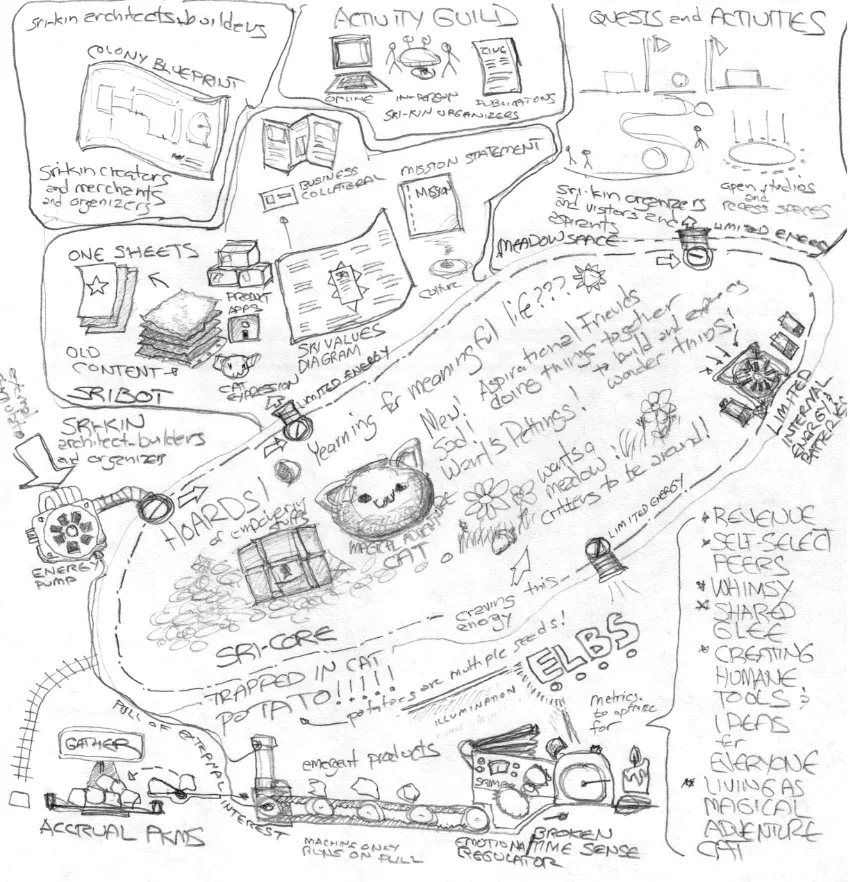 Sri-kin architects, builders
COLONY BLUEPRINT
Sri-kin creators
and merchants
and organizers
ACTIVITY GUILD
ZINE
ONLINE
IN-PERSON
PUBLICATIONS
SRI-KIN ORGANIZERS
QUESTS and ACTIVITIES
Sri-kin organizers
and visitors and
aspirants
open studios
and
recess spaces
MEADOWSPACE
LIMITED ENERGY
BUSINESS
COLLATERAL
MISSION STATEMENT
Mission
culture
SRI VALUES
DIAGRAM
ONE SHEETS
OLD
CONTENT
PRODUCT
APPS
CAT
EXPRESSION
SRIBOT
LIMITED ENERGY
SRI-KIN
architect-builders
and organizers
external
ENERGY
PUMP
Yearning for meaningful life???
New!
Sad!
Wants Pettings!
Aspirational Friends
doing things together
to build and
wonder things!
wants a
meadow
critters to be around!
HOARDS!
of
MAGICAL ADVENTURE
CAT
LIMITED
INTERNAL
ENERGY
BATTERIES
LIMITED ENERGY
craving this
energy
SRI-CORE
TRAPPED IN CAT
POTATO!!!!!
potatoes are multiple seeds!
ELBS
ILLUMINATION
metrics
to optimize
for
* REVENUE
* SELF-SELECT
PEERS
* WHIMSY
* SHARED
GLEE
* CREATING
HUMANE
TOOLS &
IDEAS
for
EVERYONE
* LIVING AS
MAGICAL
ADVENTURE
CAT
PULL OF EXTERNAL INTEREST
GATHER
ACCRUAL ARMS
emergent products
MACHINE ONLY
RUNS ON PULL
EMOTIONAL
REGULATOR
BROKEN
TIME SENSE